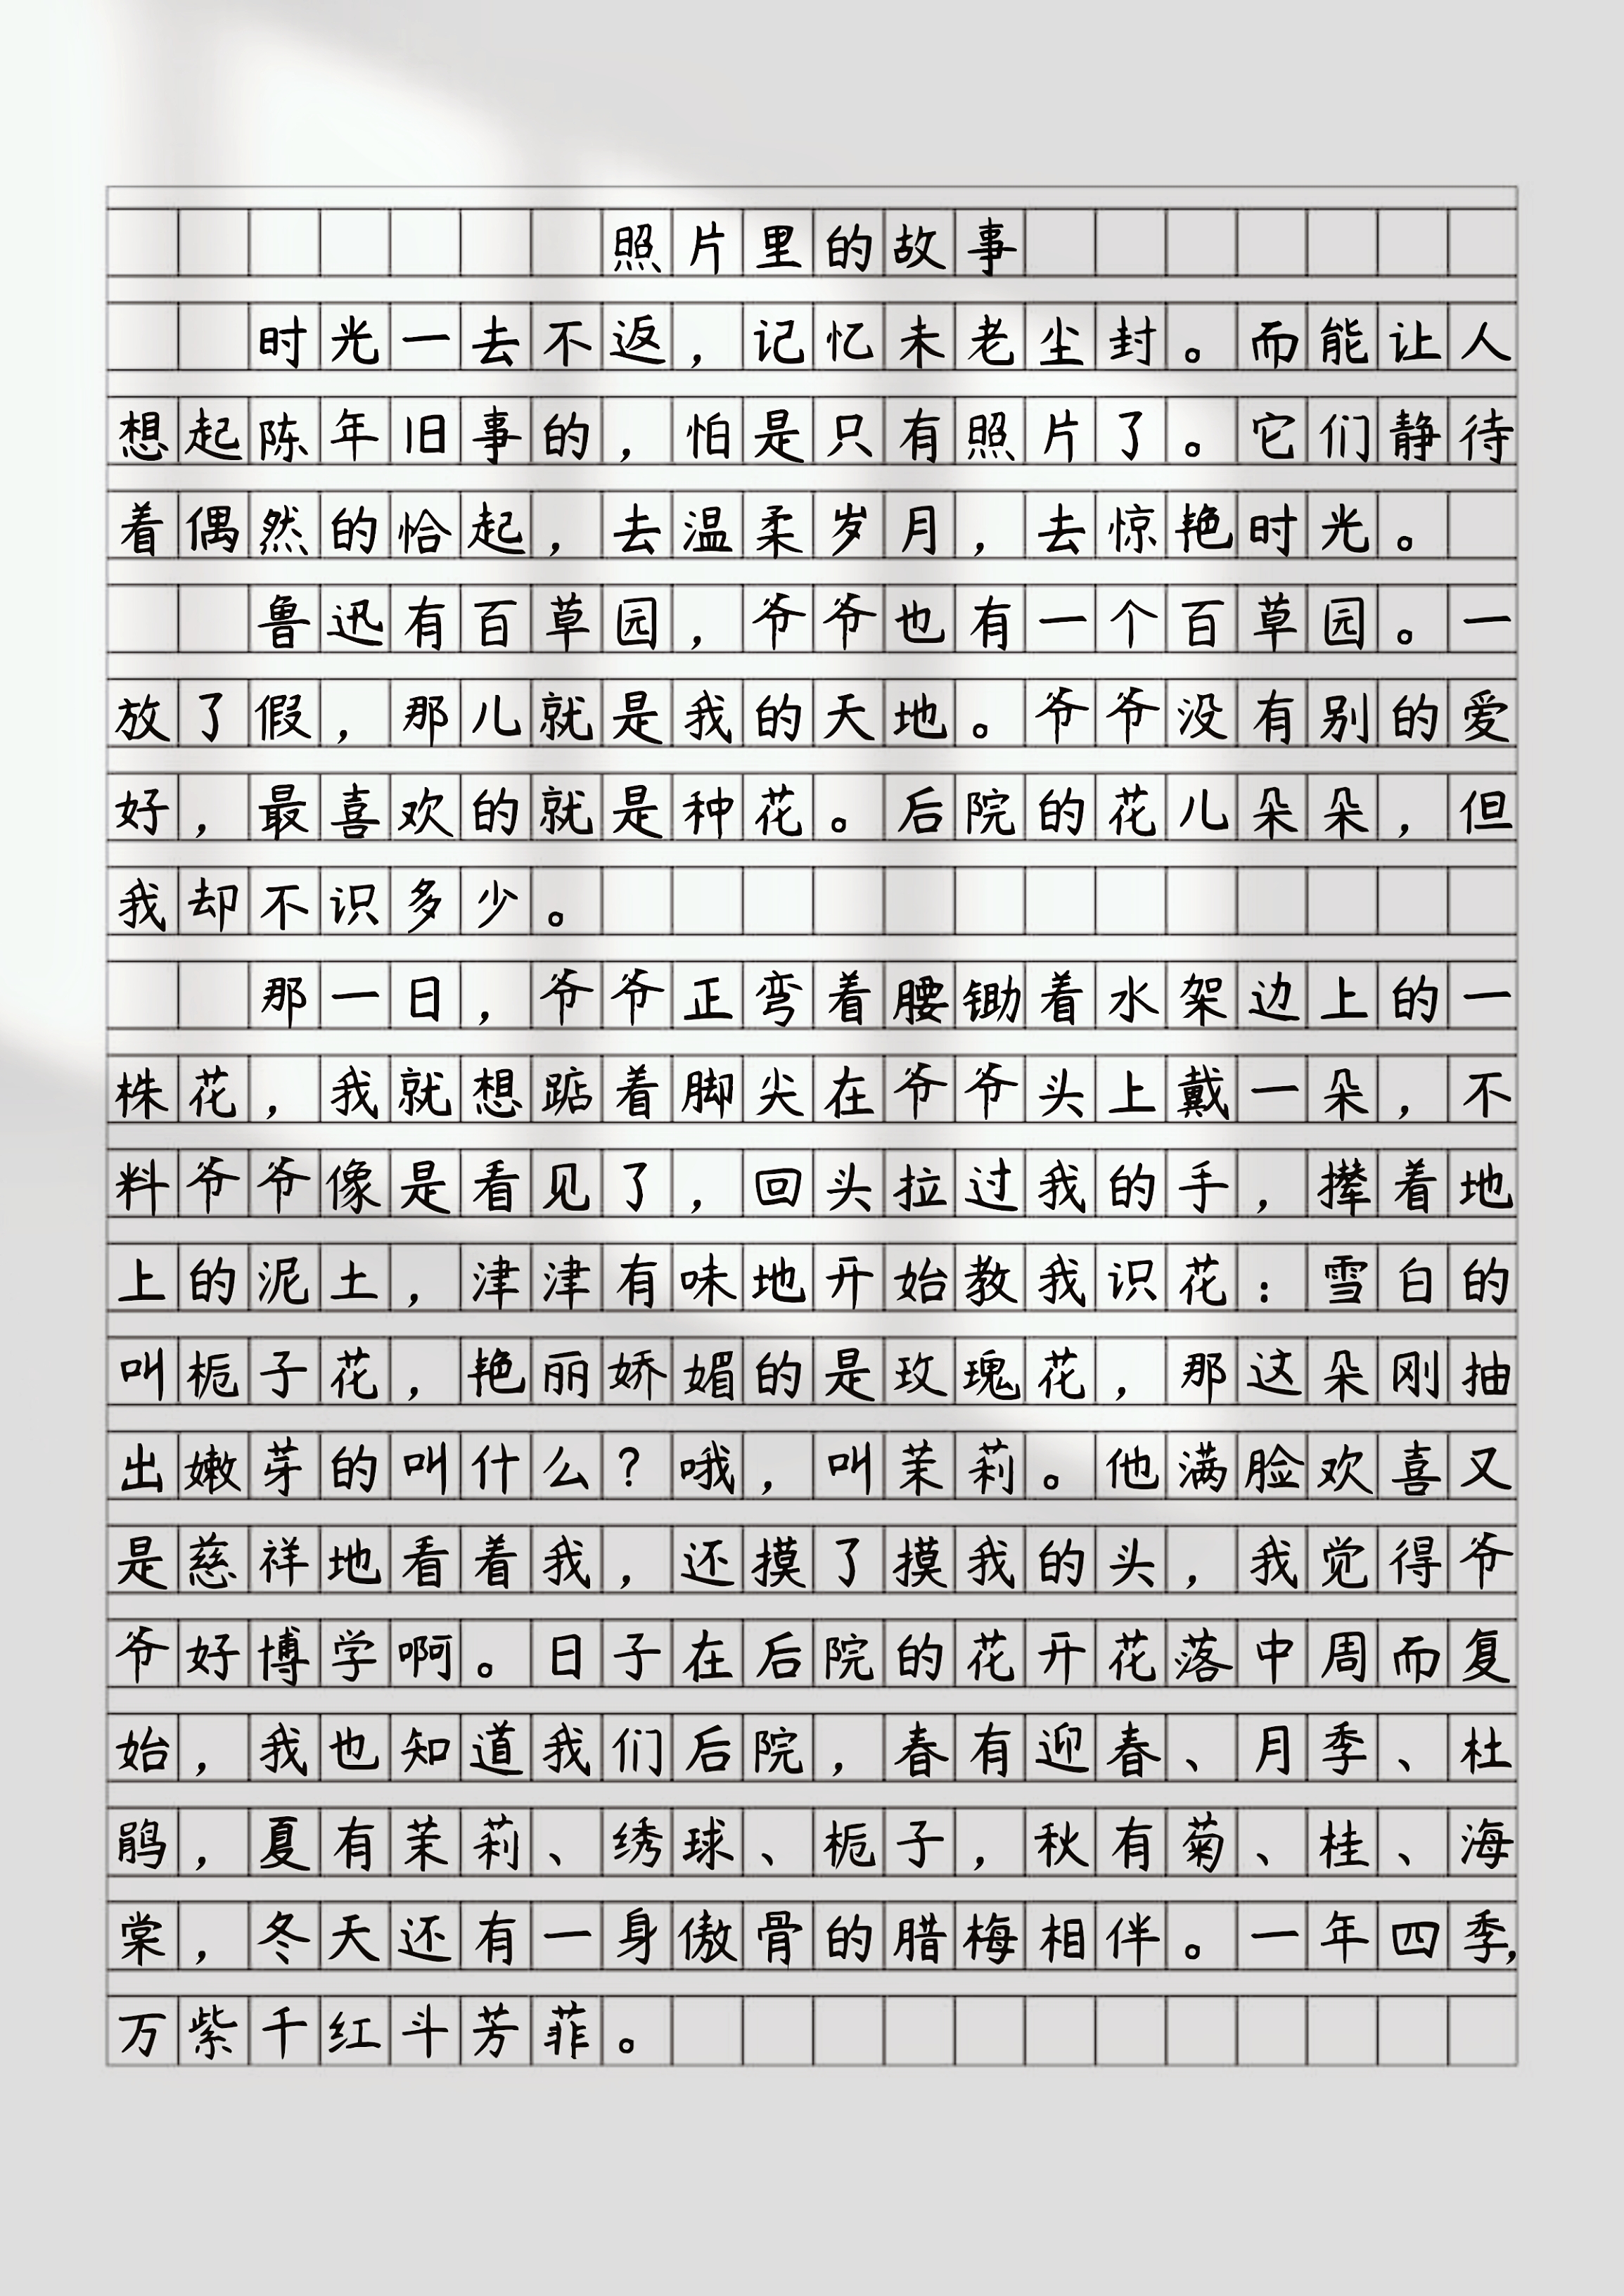 照片里的故事
时光一去不返，记忆未老尘封。而能让人
想起陈年旧事的，怕是只有照片了。它们静待
着偶然的恰起，去温柔岁月，去惊艳时光。
鲁迅有百草园，爷爷也有一个百草园。一
放了假，那儿就是我的天地。爷爷没有别的爱
好，最喜欢的就是种花。后院的花儿朵朵，但
我却不识多少。
那一日，爷爷正弯着腰锄着水架边上的一
株花，我就想踮着脚尖在爷爷头上戴一朵，不
料爷爷像是看见了，回头拉过我的手，撵着地
上的泥土，津津有味地开始教我识花：雪白的
叫栀子花，艳丽娇媚的是玫瑰花，那这朵刚抽
出嫩芽的叫什么？哦，叫茉莉。他满脸欢喜又
是慈祥地看着我，还摸了摸我的头，我觉得爷
爷好博学啊。日子在后院的花开花落中周而复
始，我也知道我们后院，春有迎春、月季、杜
鹃，夏有茉莉、绣球、栀子，秋有菊、桂、海
棠，冬天还有一身傲骨的腊梅相伴。一年四季，
万紫千红斗芳菲。